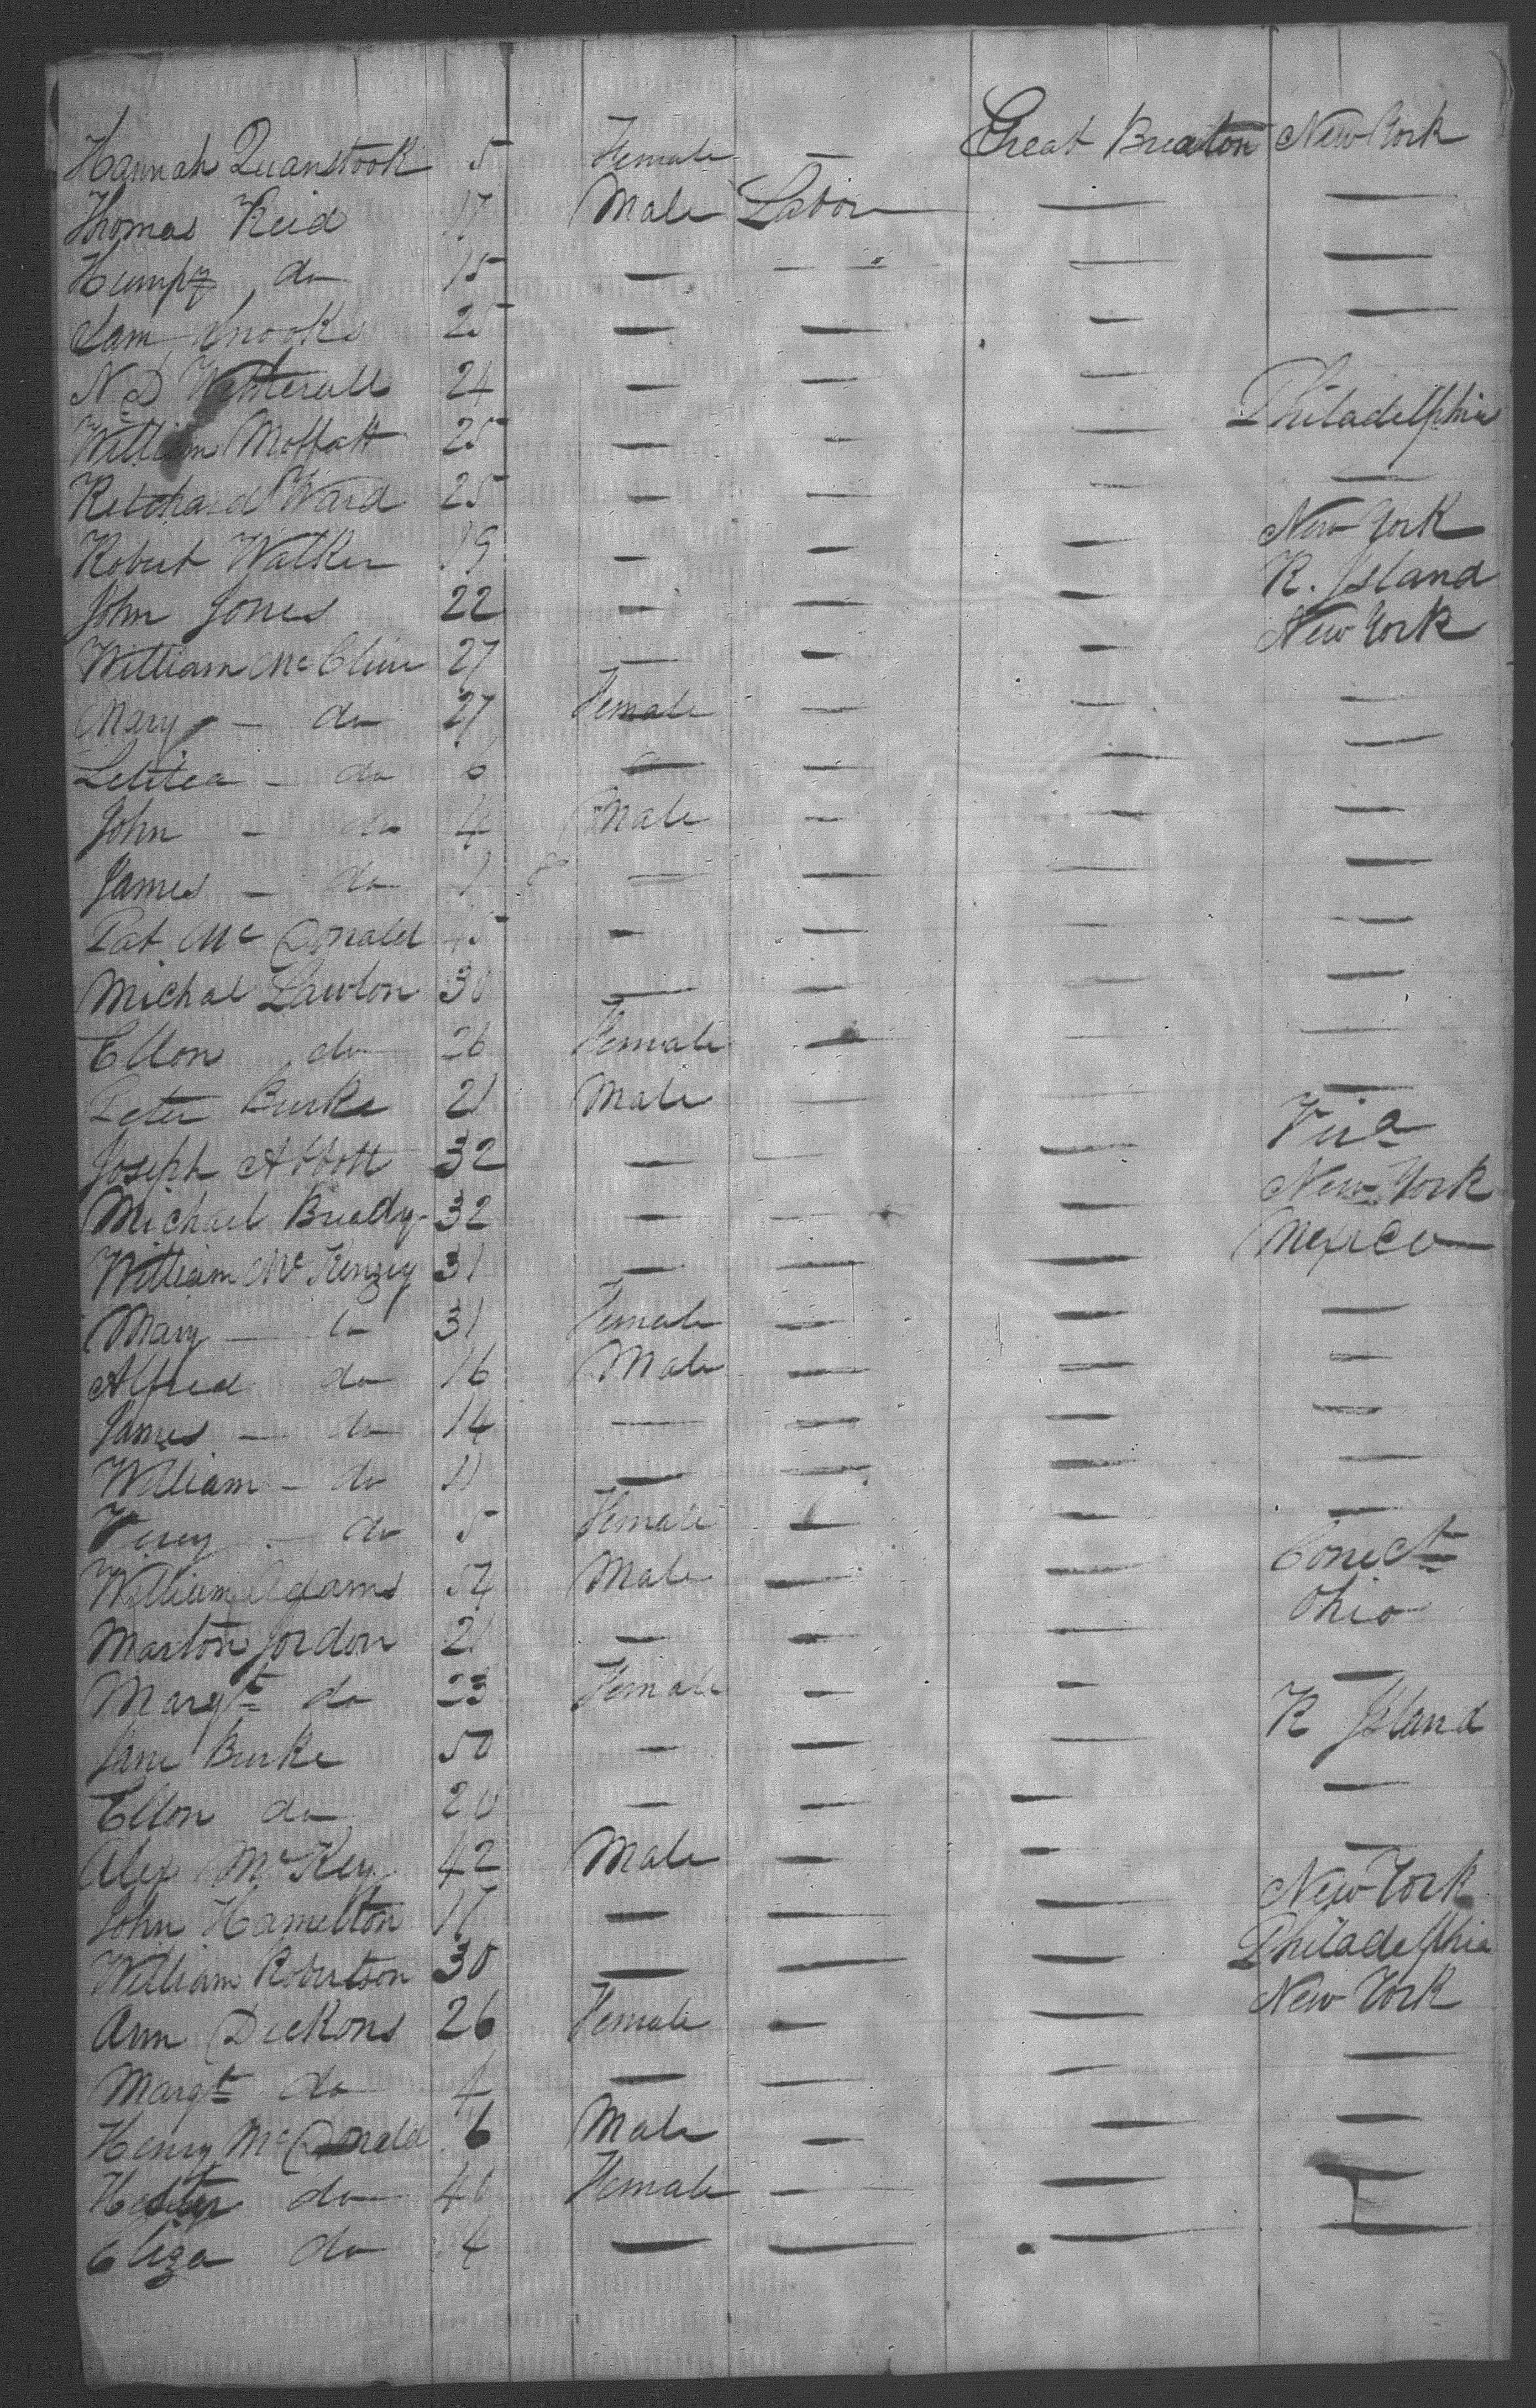 Hannah Quanstook 5 Female — Great Breaton New York
Thomas Reid 17 Male Labor — —
Humpy do 15 — — — —
Sam Snooks 25 — — — —
N D Wetterall 24 — — — Philadelphia
William Moffatt 25 — — — —
Retchard Ward 25 — — — New York
Robert Walker 19 — — — R. Island
John Jones 22 — — — New York
William McClure 27 — — —
Mary — do 27 Female — — —
Letitea — do 6 — — — —
John — do 4 Male — — —
James — do 1 — — — —
Pat McDonald 45 — — — —
Michal Lawton 30 — — — —
Ellon do 26 Female — — —
Peter Burke 21 Male — — —
Joseph Abbott 32 — — — Via
Michael Brady 32 — — — New York
William McKenzey 31 — — — Mexico
Mary — do 31 Female — — —
Alfred do 16 Male — — —
James — do 14 — — — —
William — do 11 — — — —
do 5 Female — — —
William Adams 54 Male — — Conect
Marton Jordon 21 — — — Ohio
Margt do 23 Female — — —
Jane Burke 50 — — — R Island
Ellon do 20 — — — —
Alex McKey 42 Male — — —
John Hamelton 17 — — — New York
William Robertson 30 — — — Philadelphia
Ann Dickons 26 Female — — New York
Margt do 4 — — — —
Henry McDonald 6 Male — — —
Hester do 40 Female — — —
Eliza do 4 — — — —